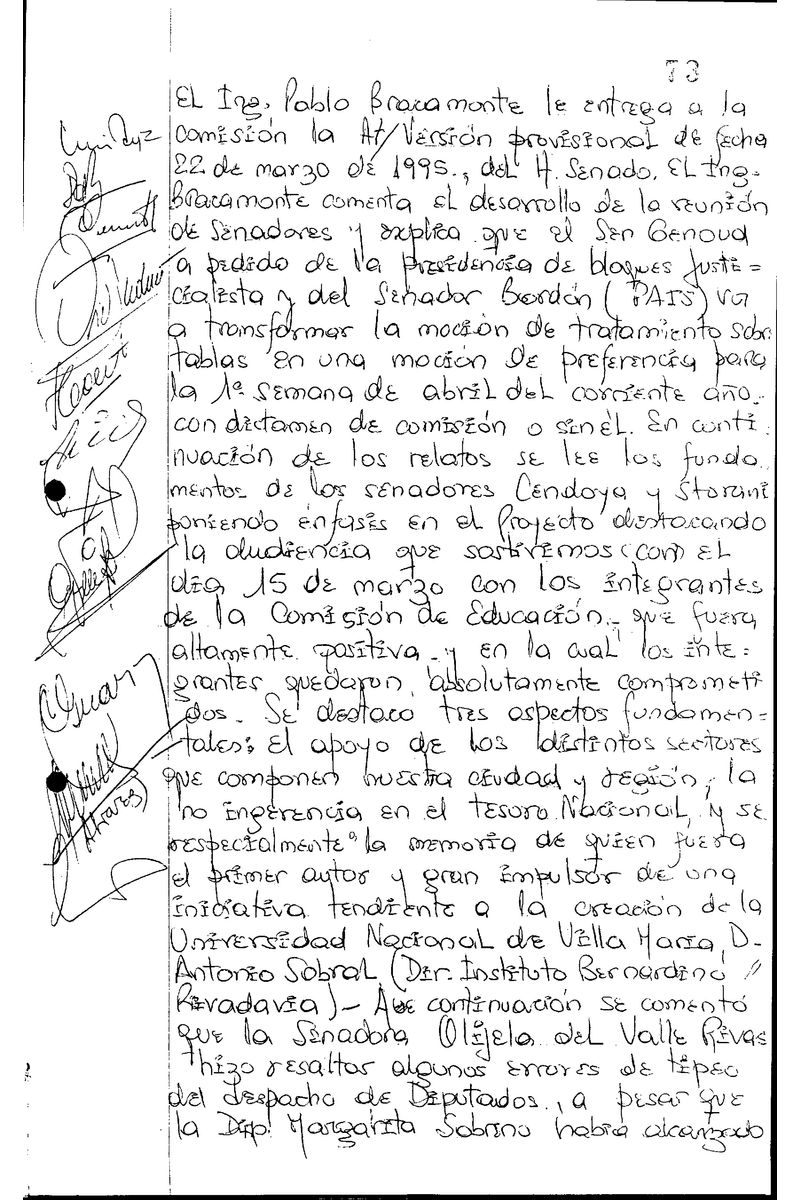 73
El Ing. Pablo Bracamonte le entrega a la
comisión la At/Versión provisional de fecha
22 de marzo de 1995., del H. Senado. El Ing.
Bracamonte comenta el desarrollo de la reunión
de Senadores y explica que el Sen Genoud
a pedido de la presidencia de bloques Justi=
cialista y del Senador Bordón (PAIS) va
a transformar la moción de tratamiento sobre
tablas en una moción de preferencia para
la 1ª semana de abril del corriente año.
con dictamen de comisión o sin él. En conti
nuación de los relatos se lee los funda
mentos de los senadores Cendoya y Storani
poniendo énfasis en el Proyecto destacando
la audiencia que sostuvimos (con) el
día 15 de marzo con los integrantes
de la Comisión de Educación, que fuera
altamente positiva y en la cual los inte=
grantes quedaron absolutamente comprometi
dos. Se destaco tres aspectos fundamen=
tales: El apoyo de los distintos sectores
que componen nuestra ciudad y región, la
no ingerencia en el Tesoro Nacional, y se
respecialmente la memoria de quien fuera
el primer autor y gran impulsor de una
iniciativa tendiente a la creación de la
Universidad Nacional de Villa María D.
Antonio Sobral (Dir. Instituto Bernardino
Rivadavia) - A continuación se comentó
que la Senadora Olijela del Valle Rivas
hizo resaltar algunos errores de tipeo
del despacho de Diputados, a pesar que
la Dip. Margarita Sobrino había alcanzado
Oscar
Alvarez